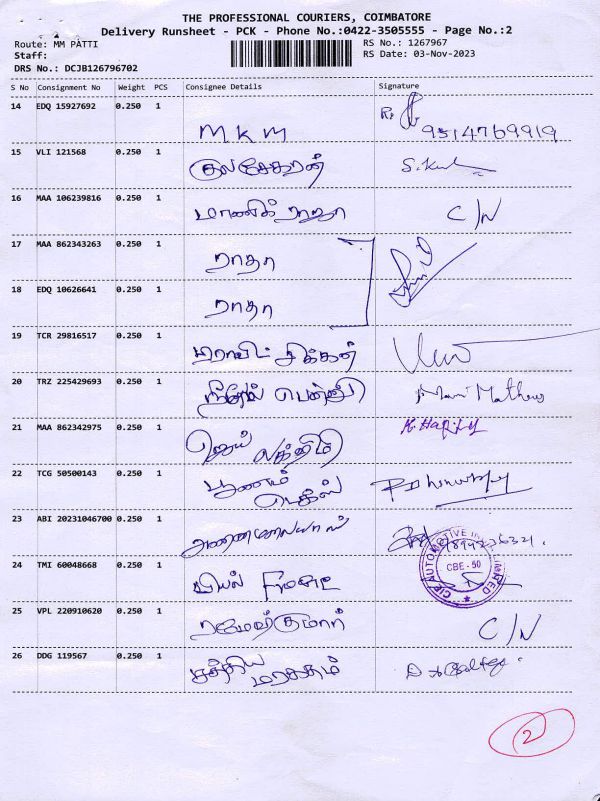 THE PROFESSIONAL COURIERS, COIMBATORE
Delivery Runsheet - PCK - Phone No.:0422-3505555 - Page No.:2
Route: MM PATTI RS No.: 1267967
Staff: RS Date: 03-Nov-2023
DRS No.: DCJB126796702
S No Consignment No Weight PCS Consignee Details Signature
14 EDQ 15927692 0.250 1
MKM 9514769919
15 VLI 121568 0.250 1
குலசேகரன்
16 MAA 106239816 0.250 1
மாணிக் ராஜா C/N
17 MAA 862343263 0.250 1
ராதா
18 EDQ 10626641 0.250 1
ராதா
19 TCR 29816517 0.250 1
20 TRZ 225429693 0.250 1
Mani Mathew
21 MAA 862342975 0.250 1
ஜெய் லக்ஷ்மி
22 TCG 50500143 0.250 1
பூணம்
23 ABI 20231046700 0.250 1
24 TMI 60048668 0.250 1
CBE - 50
25 VPL 220910620 0.250 1
ரமேஷ்குமார் C/N
26 DDG 119567 0.250 1
சத்திய
மரகதம்
2